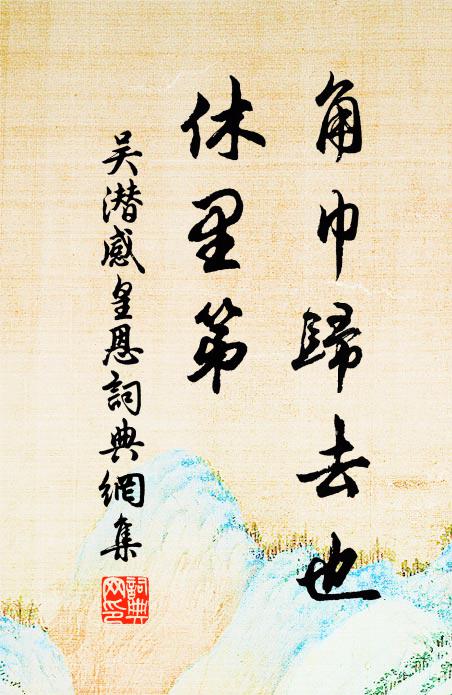 角巾歸去也
休里第
吴潜感皇恩詞典網集
詞典网印